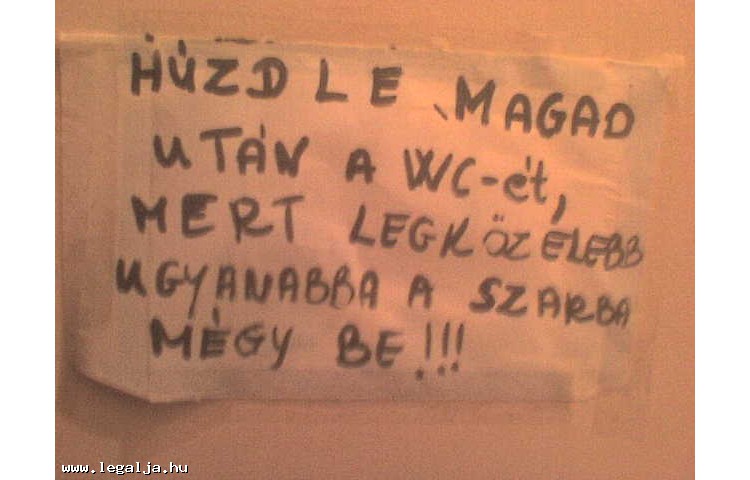 HÚZD LE MAGAD
UTÁN A WC-ét,
MERT LEGKÖZELEBB
UGYANABBA A SZARBA
MÉGY BE!!!
www.legalja.hu